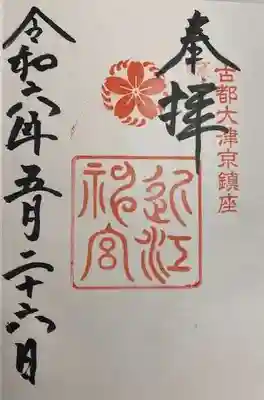 古都大津京鎮座
奉拝
近江神宮
令和六年五月二十六日